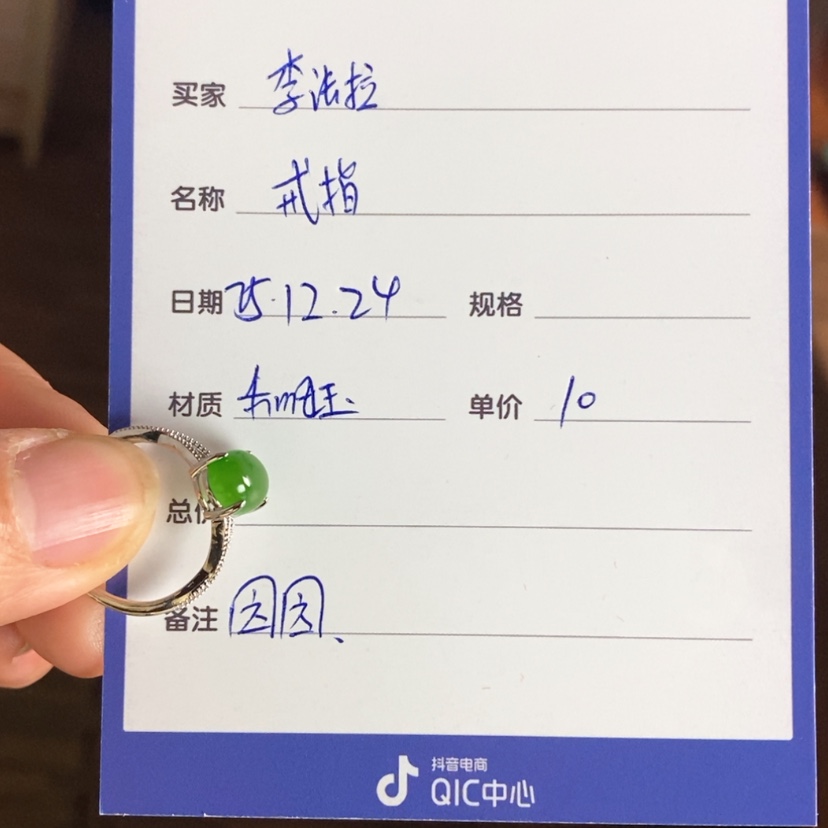 买家 李法拉
名称 戒指
日期 25.12.24 规格
材质 和田玉 单价 10
总价
备注 囡囡、
抖音电商
QIC中心